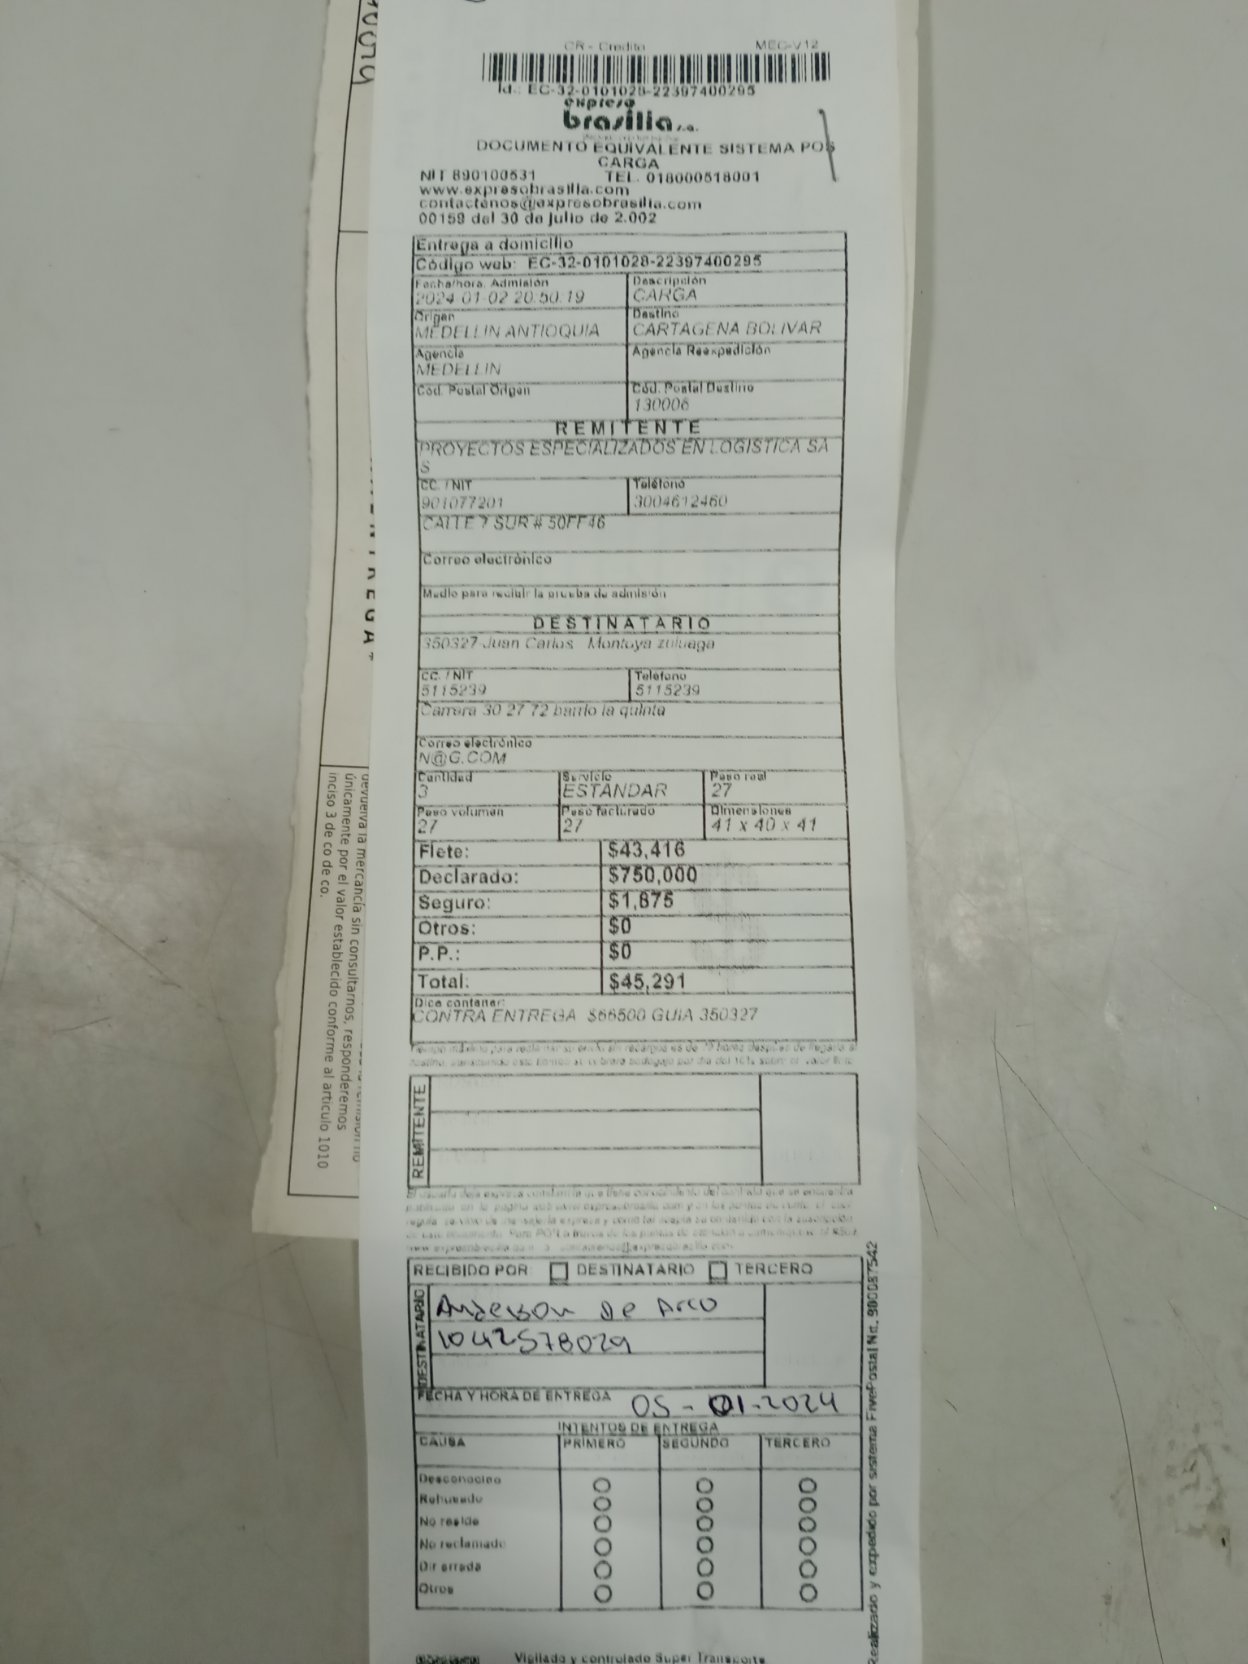 CR - Credito MEC-V12
Id.: EC-32-0101028-22397400295
expreso
brasilia s.a.
DOCUMENTO EQUIVALENTE SISTEMA POS
CARGA
NIT 890100531 TEL. 018000518001
www.expresobrasilia.com
contactenos@expresobrasilia.com
00159 del 30 de julio de 2.002
Entrega a domicilio
Código web: EC-32-0101028-22397400295
Fecha/hora. Admisión Descripción
2024-01-02 20:50:19 CARGA
Origen Destino
MEDELLIN ANTIOQUIA CARTAGENA BOLIVAR
Agencia Agencia Reexpedición
MEDELLIN
Cód. Postal Origen Cód. Postal Destino
130006
REMITENTE
PROYECTOS ESPECIALIZADOS EN LOGISTICA SA
S
CC. / NIT Teléfono
901077201 3004612460
CALLE 7 SUR # 50FF46
Correo electrónico
Medio para recibir la prueba de admisión
DESTINATARIO
350327 Juan Carlos Montoya zuluaga
CC. / NIT Teléfono
5115239 5115239
Carrera 30 27 72 barrio la quinta
Correo electrónico
N@G.COM
Cantidad Servicio Peso real
3 ESTANDAR 27
Peso volumen Peso facturado Dimensiones
27 27 41 x 40 x 41
Flete: $43,416
Declarado: $750,000
Seguro: $1,875
Otros: $0
P.P.: $0
Total: $45,291
Dice contener:
CONTRA ENTREGA $66500 GUIA 350327
REMITENTE
RECIBIDO POR DESTINATARIO TERCERO
DESTINATARIO
Anderson De Arco
1042578029
FECHA Y HORA DE ENTREGA 05-01-2024
INTENTOS DE ENTREGA
CAUSA PRIMERO SEGUNDO TERCERO
Desconocido
Rehusado
No reside
No reclamado
Dir errada
Otros
Vigilado y controlado Super Transporte
Realizado y expedido por sistema FivePostal Nit. 900087542
devuelva la mercancía sin consultarnos, responderemos
únicamente por el valor establecido conforme al articulo 1010
inciso 3 de co de co.